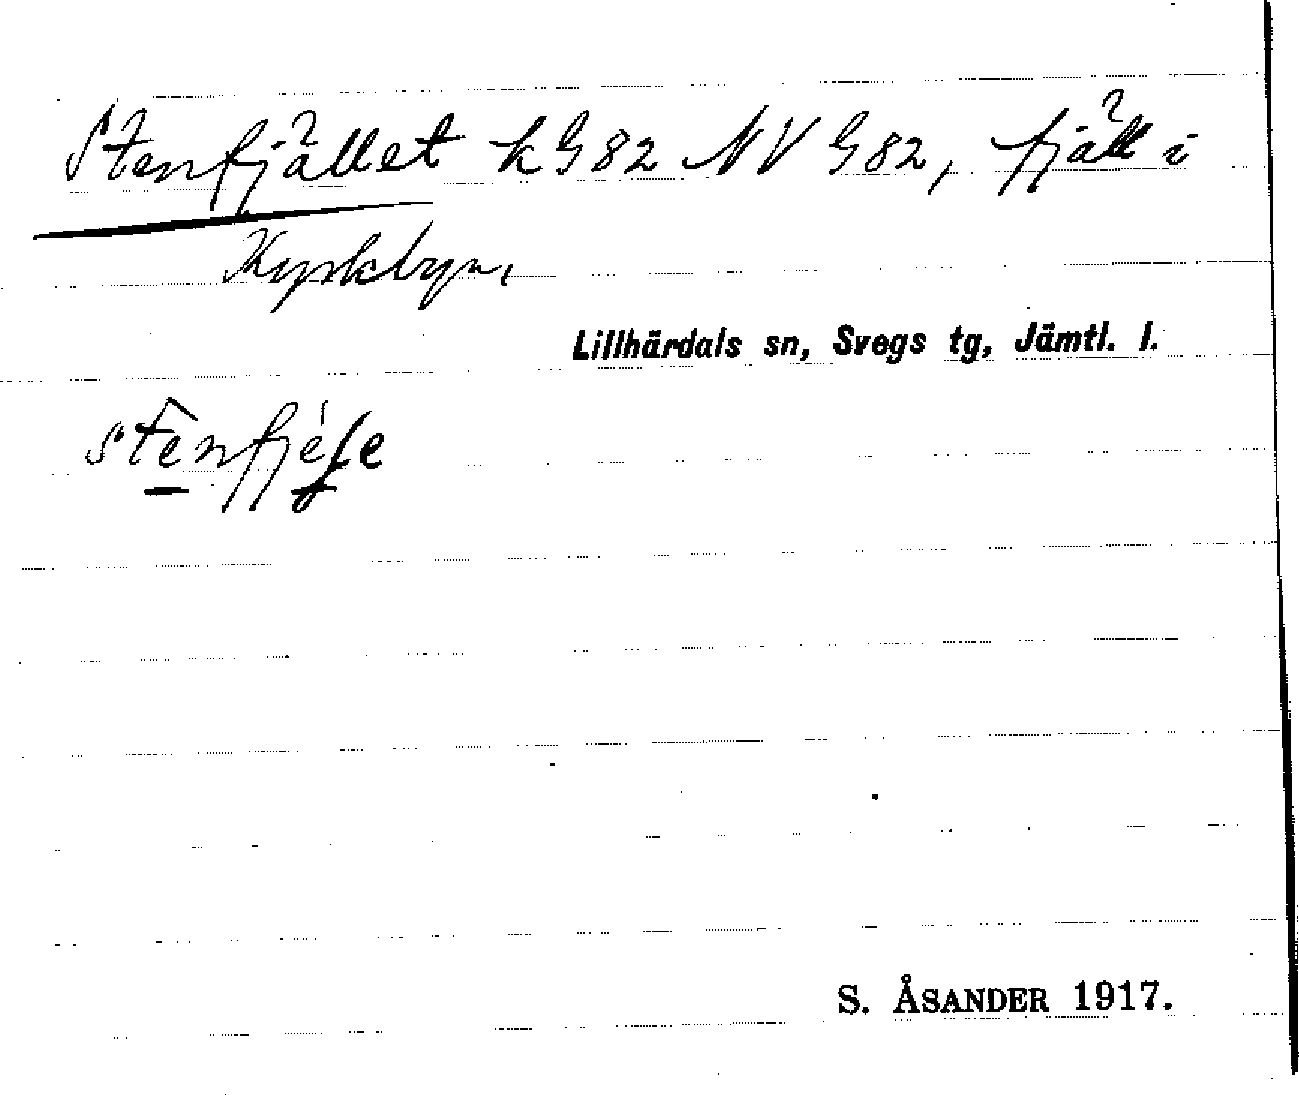 Stenfjället k G82 NV G82, fjäll i
Kyrkbyn,
Lillhärdals sn, Svegs tg, Jämtl. l.
S. ÅSANDER 1917.